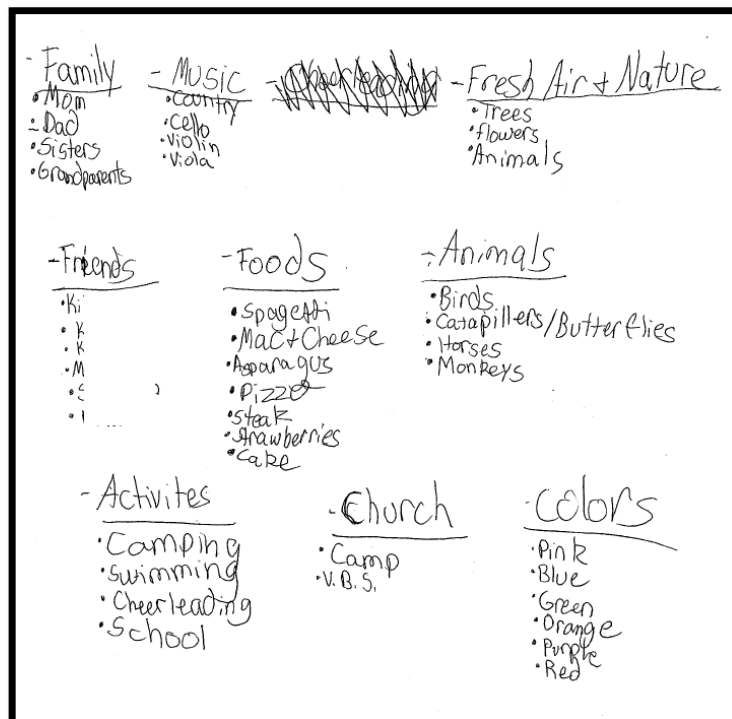 - Family
• Mom
• Dad
• Sisters
• Grandparents
- Music
• Country
• Cello
• Violin
• Viola
- Fresh Air + Nature
• Trees
• flowers
• Animals
- Friends
- Foods
• Spagetti
• Mac + Cheese
• Asparagus
• Pizza
• Steak
• Strawberries
• Cake
- Animals
• Birds
• Catapillers/Butterflies
• Horses
• Monkeys
- Activites
• Camping
• Swimming
• Cheerleading
• School
- Church
• Camp
• V.B.S.
- Colors
• Pink
• Blue
• Green
• Orange
• Purple
• Red